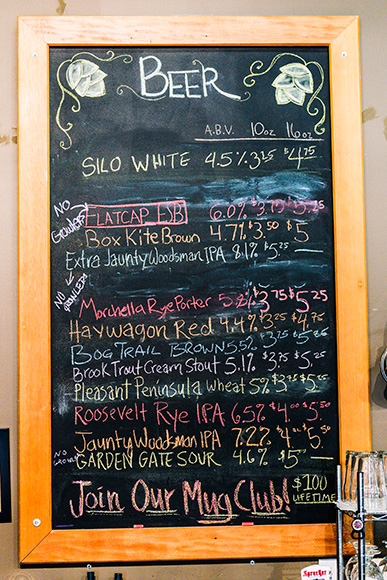 BEER
A.B.V. 10oz 16oz
SILO WHITE 4.5% 3.25 $4.75
NO GROWLERS
FLATCAP ESB 6.0% $3.75 $5.25
Box Kite Brown 4.7% $3.50 $5
Extra Jaunty Woodsman IPA 8.1% $5.25 —
NO GROWLERS
Morchella Rye Porter 5.2% $3.75 $5.25
Haywagon Red 4.4% $3.25 $4.75
BOG TRAIL BROWN 5.5% $3.75 $5.25
Brook Trout Cream Stout 5.1% $3.75 $5.25
Pleasant Peninsula Wheat 5% $3.75 $5.25
Roosevelt Rye IPA 6.5% $4.00 $5.50
Jaunty Woodsman IPA 7.2% $4.00 $5.50
NO GROWLERS
GARDEN GATE SOUR 4.6% $5 —
Join Our Mug Club! $100
LIFETIME
Sprecher